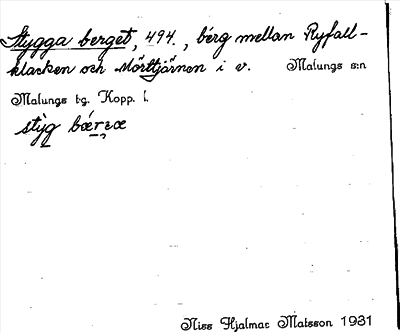 Stygga berget, 494., berg mellan Ryfall-
klacken och Mörttjärnen i v. Malungs s:n
Malungs tg. Kopp. l.
styg
Niss Hjalmar Matsson 1931